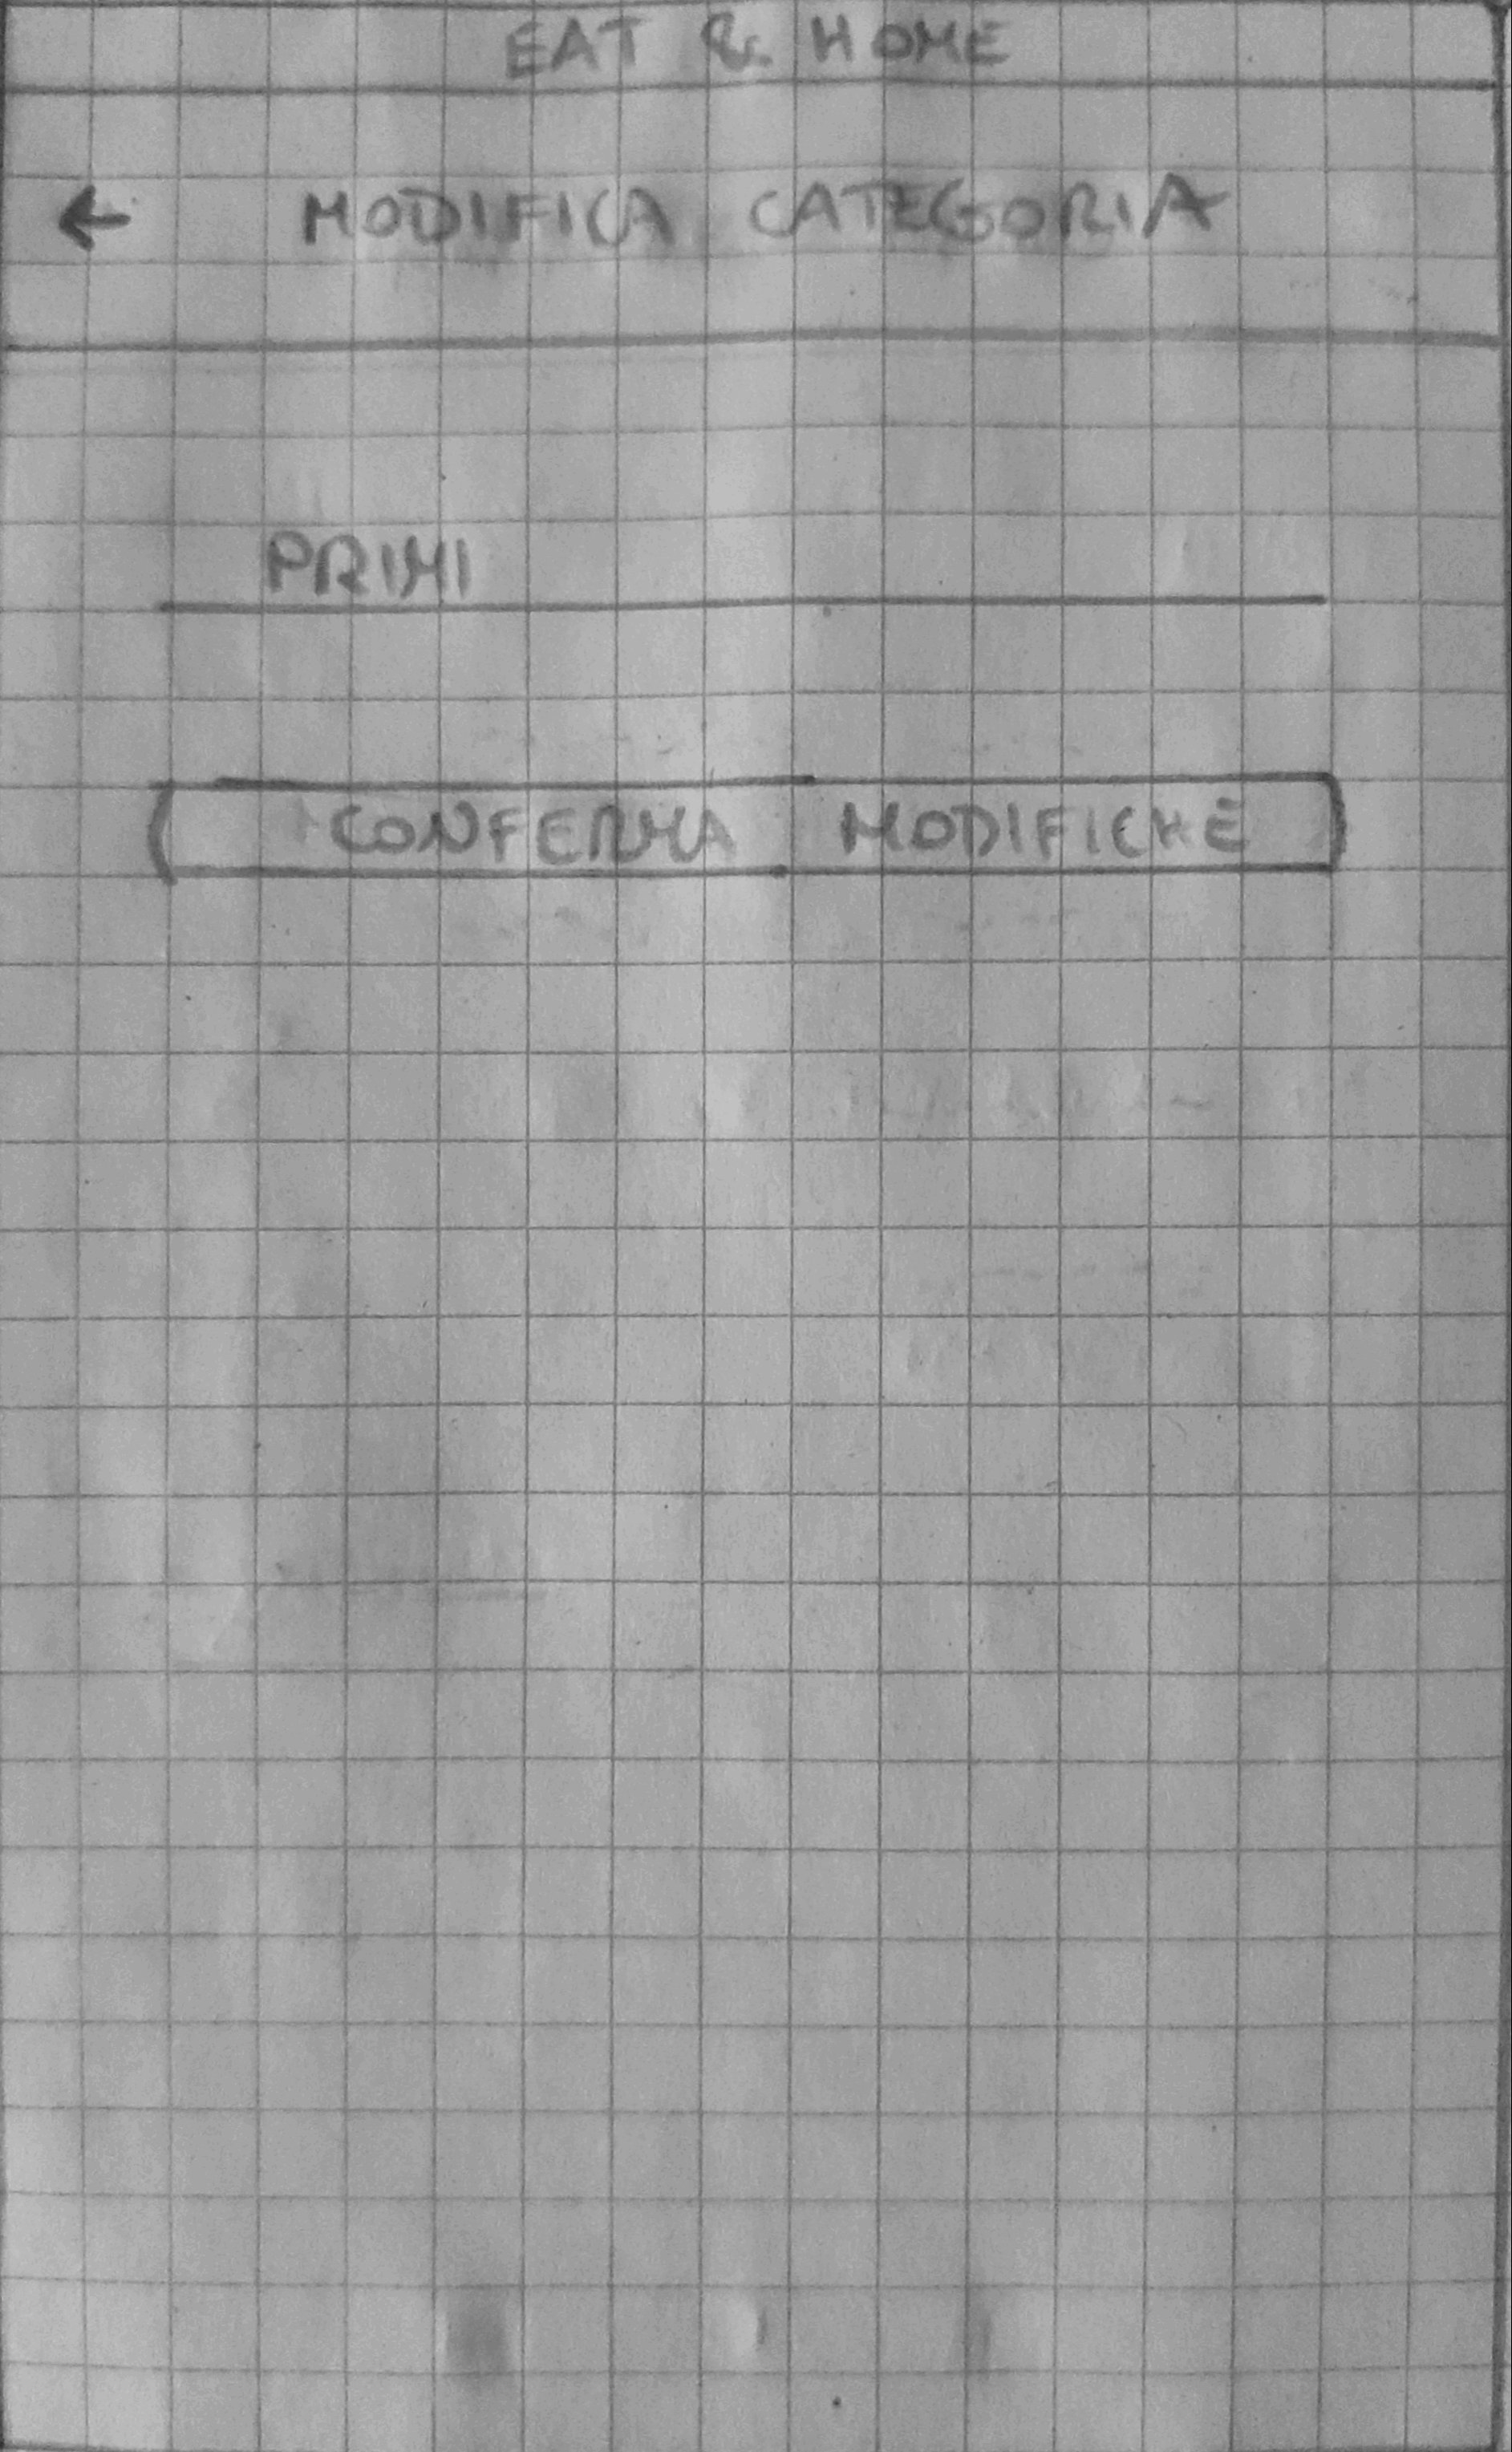 EAT & HOME
← MODIFICA CATEGORIA
PRIMI
CONFERMA MODIFICHE